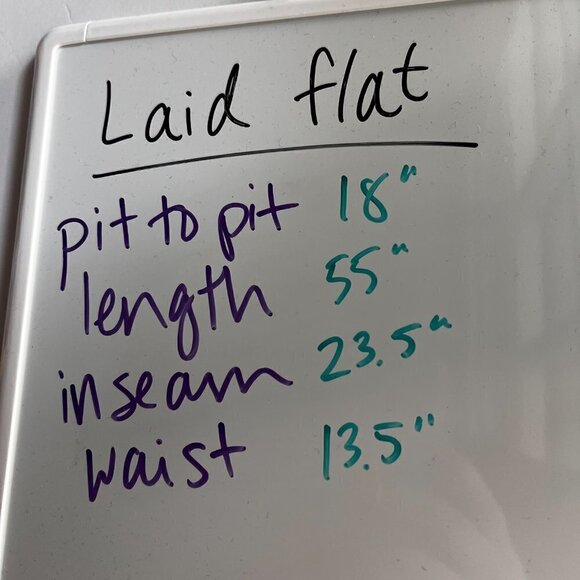 Laid flat
pit to pit 18"
length 55"
inseam 23.5"
waist 13.5"